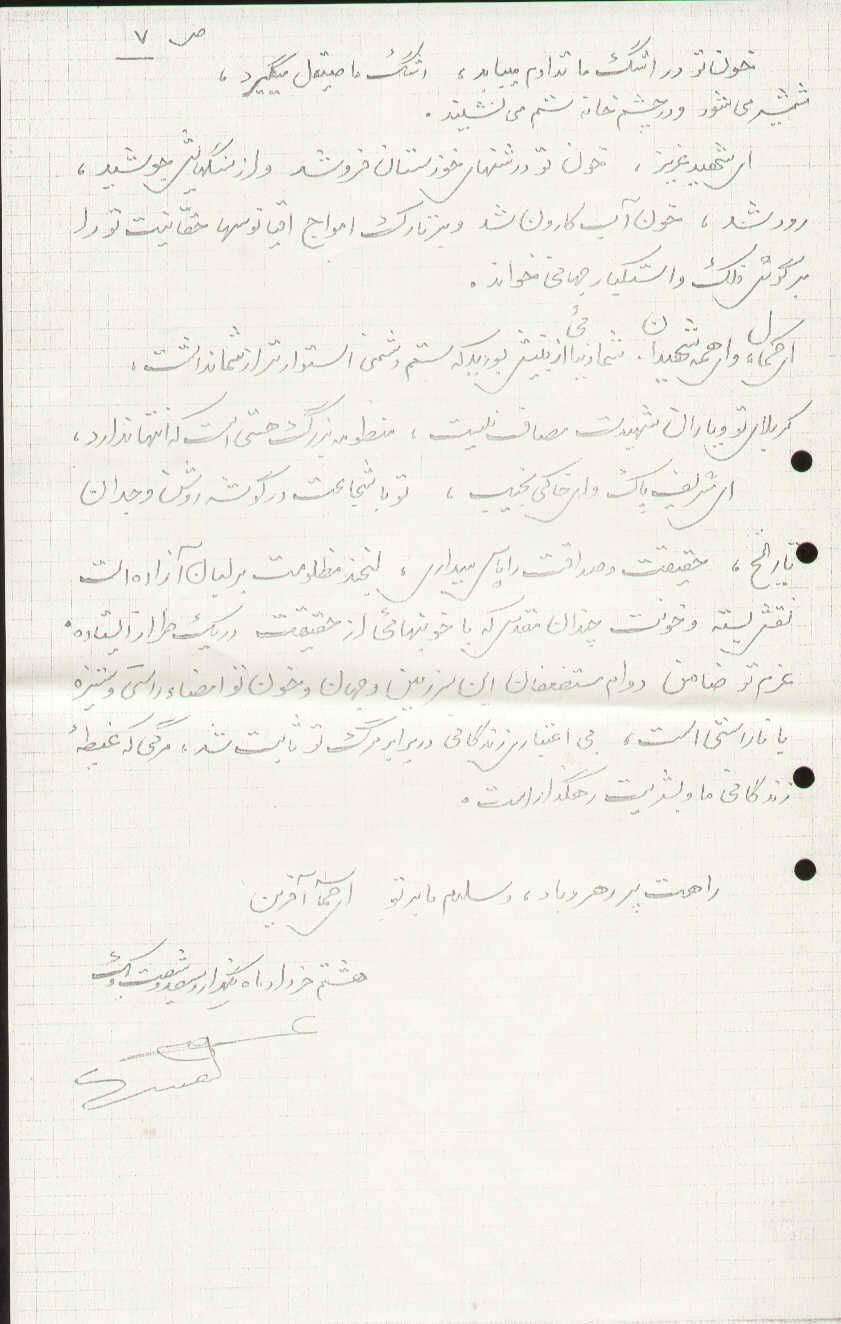 ص ۷
خون تو در اشک ما تداوم مییابد، اشک ما صیقل میگیرد،
شمشیر می شود و در چشم خانه ستم می نشیند.
ای شهید عزیز، خون تو در شنهای خوزستان فرو شد و از سنگهایش جوشید،
رود شد، خون آب کارون شد و بر تارک امواج اقیانوسها حقّانیت تو را
بر گوش فلک و استکبار جهانی خواند.
ای و ای همه شهیدان. شما زیبا از بینش بودید که ستم دشمنی استوارتر از شما نداشت،
کربلای تو و یاران شهیدت مصاف نیست، منظومه بزرگ هستی است که انتها ندارد،
ای شریف پاک و ای خاکی نجیب، تو با شجاعت در گوشه روشن وجدان
تاریخ، حقیقت و صداقت را پاس میداری، لبخند مظلومیت بر لبان آزاده ات
نقش بسته و خونت چندان مقدس که با خونبهائی از حقیقت در یک طراز ایستاده.
عزم تو ضامن دوام مستضعفان این سرزمین و جهان و خون تو امضاء راستی و ستیزه
با ناراستی است، بی اعتباری زندگانی در برابر مرگ تو ثابت شد، مرگی که غبطهٔ
زندگانی ما و بشریت رهگذار است.
راهت پر رهرو باد، و سلام ما بر تو ای حماسه آفرین
هشتم خرداد ماه یکهزار و سیصد و شصت و یک